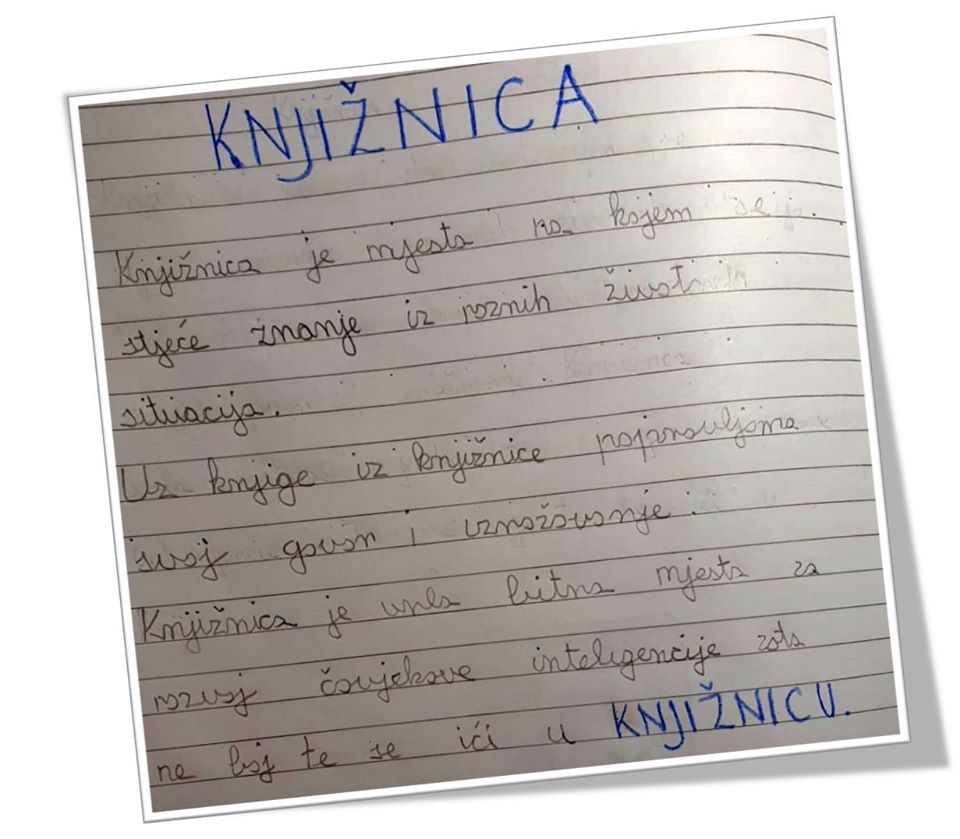 KNJIŽNICA
Knjižnica je mjesto na kojem se
stječe znanje iz raznih životnih
situacija.
Uz knjige iz knjižnice popravljamo
svoj govor i izražavanje.
Knjižnica je vrlo bitno mjesto za
razvoj čovjekove inteligencije zato
ne boj te se ići u KNJIŽNICU.